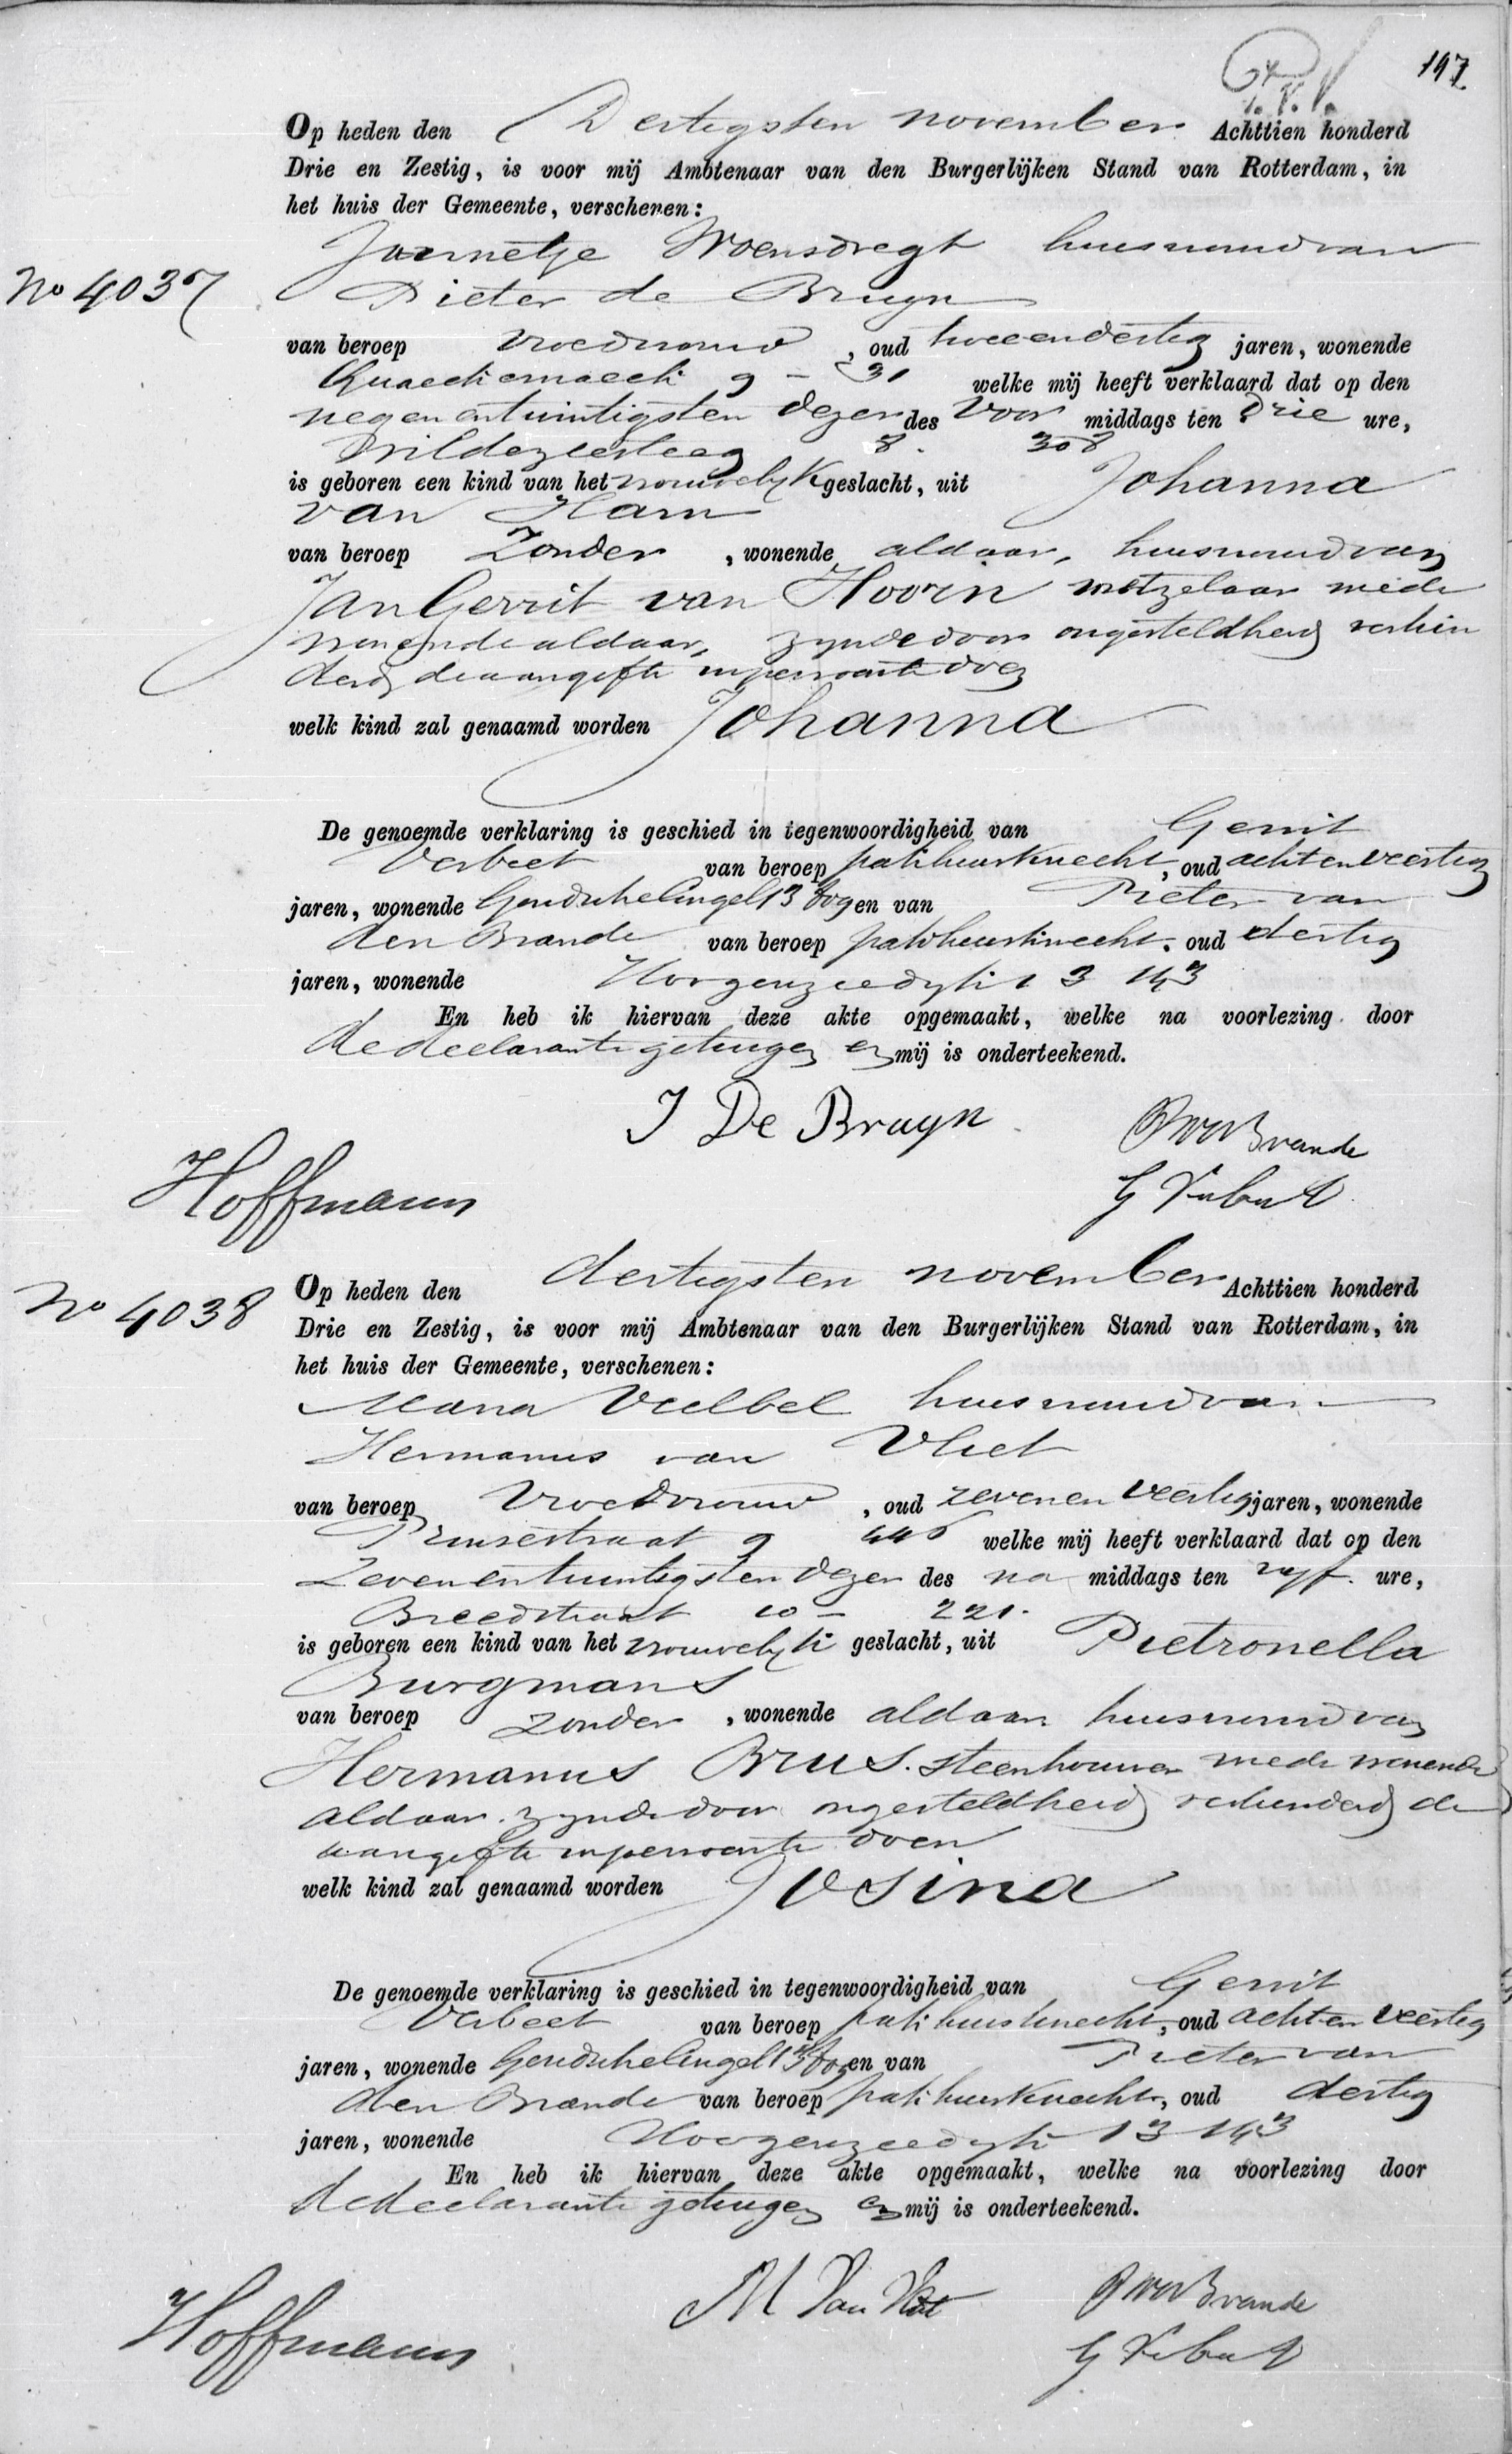 197
Op heden den Dertigsten november Achttien honderd
Drie en Zestig, is voor mij Ambtenaar van den Burgerlijken Stand van Rotterdam, in
het huis der Gemeente, verschenen:
Jannetje Woensdregt huisvrouw van
No 4037
Pieter de Bruyn
van beroep Vroedvrouw, oud tweeendertig jaren, wonende
9 - 31 welke mij heeft verklaard dat op den
negenentwintigsten dezer des Voor middags ten Drie ure,
8. 308
is geboren een kind van het vrouwelyk geslacht, uit Johanna
van Ham
van beroep Zonder, wonende aldaar, huisvrouw van
Jan Gerrit van Hoorn metzelaar mede
wonende aldaar, zynde door ongesteldheid verhin
derd de aangifte in persoon te doen
welk kind zal genaamd worden Johanna
De genoemde verklaring is geschied in tegenwoordigheid van Gerrit
Verbeet van beroep pakhuisknecht, oud achtenveertig
jaren, wonende Goudschesingel 13 en van Pieter van
den Brande van beroep pakhuisknecht, oud dertig
jaren, wonende 13 143
En heb ik hiervan deze akte opgemaakt, welke na voorlezing door
de declarante getuigen en mij is onderteekend.
J De Bruyn
PvdBrande
Hoffmann
G Verbeet
No 4038
Op heden den dertigsten november Achttien honderd
Drie en Zestig, is voor mij Ambtenaar van den Burgerlijken Stand van Rotterdam, in
het huis der Gemeente, verschenen:
Maria Veelbel huisvrouw van
Hermanus van Vliet
van beroep Vroedvrouw, oud zevenenveertig jaren, wonende
Prinsestraat 9 446 welke mij heeft verklaard dat op den
Zevenentwintigsten dezer des na middags ten vyf ure,
Breedstraat 10 - 221.
is geboren een kind van het vrouwelyk geslacht, uit Pietronella
Burgmans
van beroep zonder, wonende aldaar huisvrouw van
Hermanus Brus. steenhouwer mede wonende
aldaar. zynde door ongesteldheid verhinderd de
aangifte in persoon te doen
welk kind zal genaamd worden Josina
De genoemde verklaring is geschied in tegenwoordigheid van Gerrit
Verbeet van beroep pakhuisknecht, oud achtenveertig
jaren, wonende Goudschesingel 13 en van Pieter van
den Brande van beroep pakhuisknecht, oud dertig
jaren, wonende 13 143
En heb ik hiervan deze akte opgemaakt, welke na voorlezing door
de declarante getuigen en mij is onderteekend.
M Van Vliet
PvdBrande
Hoffmann
G Verbeet